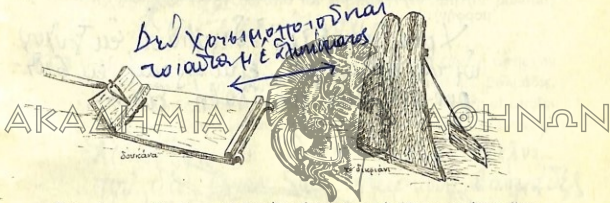 Δὲν χρησιμοποιοῦνται
τοιαῦτα μ
ΑΚΑΔΗΜΙΑ ΑΘΗΝΩΝ
δουκάνα
δικριάνι